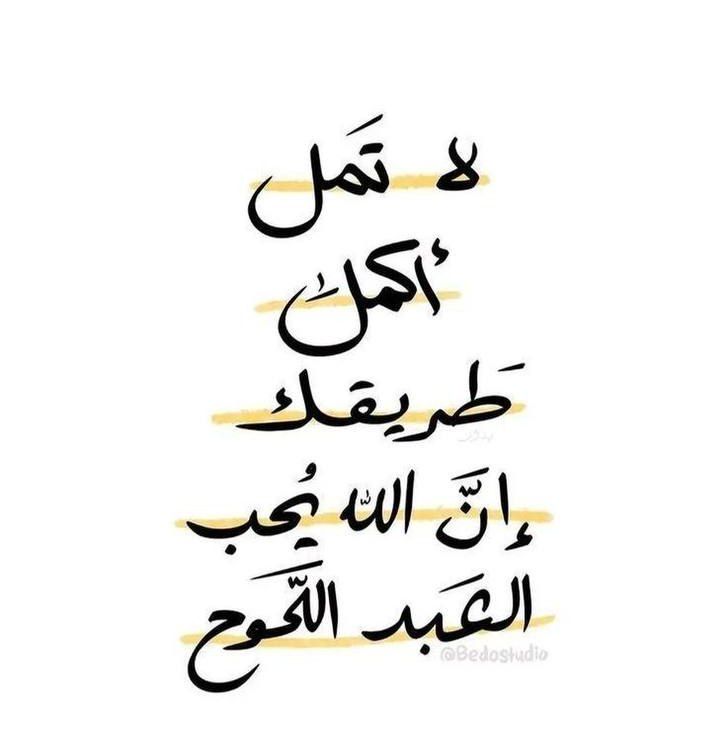 لا تَمل
أكملْ
طَريقك
إنَّ الله يُحب
العَبد اللَّحوح
@Bedostudio